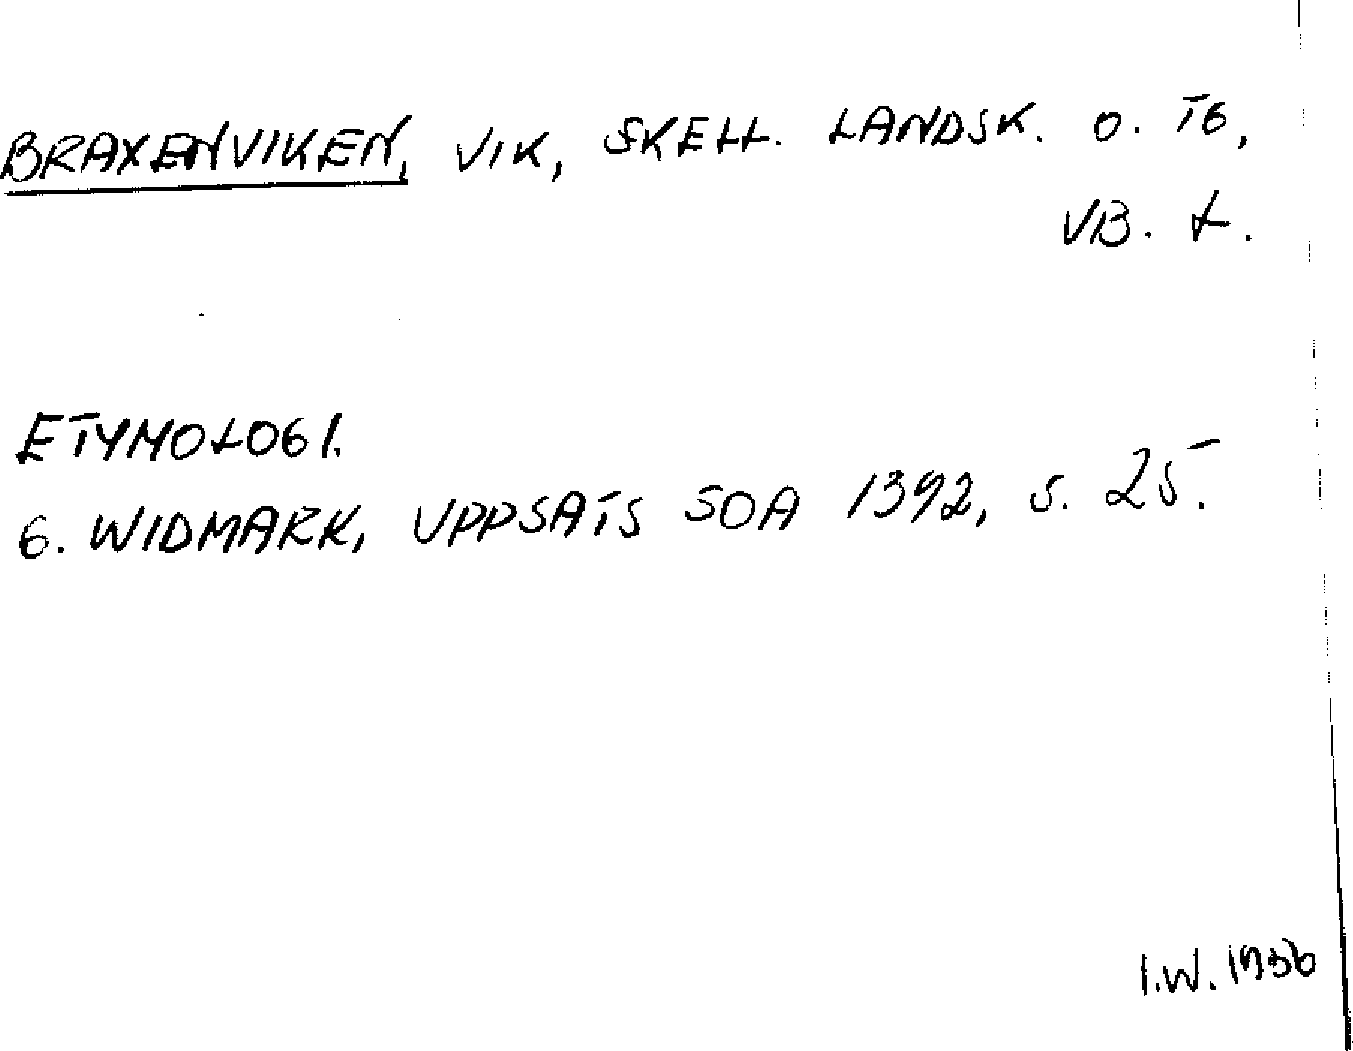 BRAXENVIKEN, VIK, SKELL. LANDSK. O. TG,
VB. L.
ETYMOLOGI.
G. WIDMARK, UPPSATS SOA 1392, S. 25.
I.W. 1956